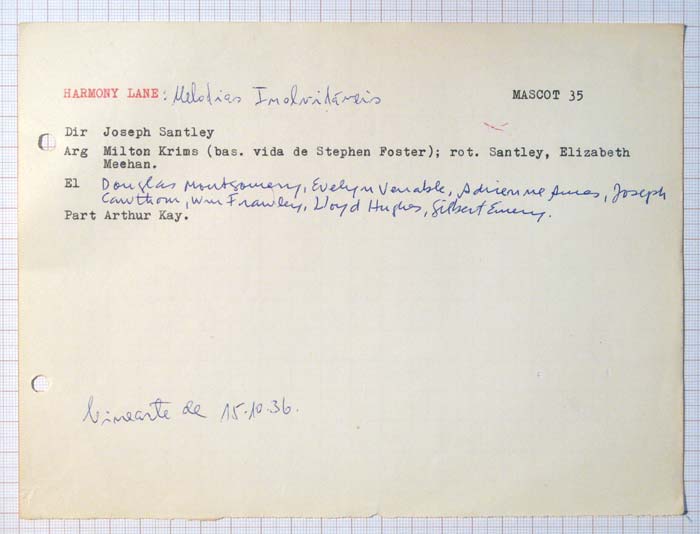 HARMONY LANE: Melodias Inolvidáveis MASCOT 35
Dir Joseph Santley
Arg Milton Krims (bas. vida de Stephen Foster); rot. Santley, Elizabeth
Meehan.
El Douglas Montgomery, Evelyn Venable, Adrienne Ames, Joseph
Cawthorn, Wm Frawley, Lloyd Hughes, Gilbert Emery.
Part Arthur Kay.
Cinearte de 15.10.36.